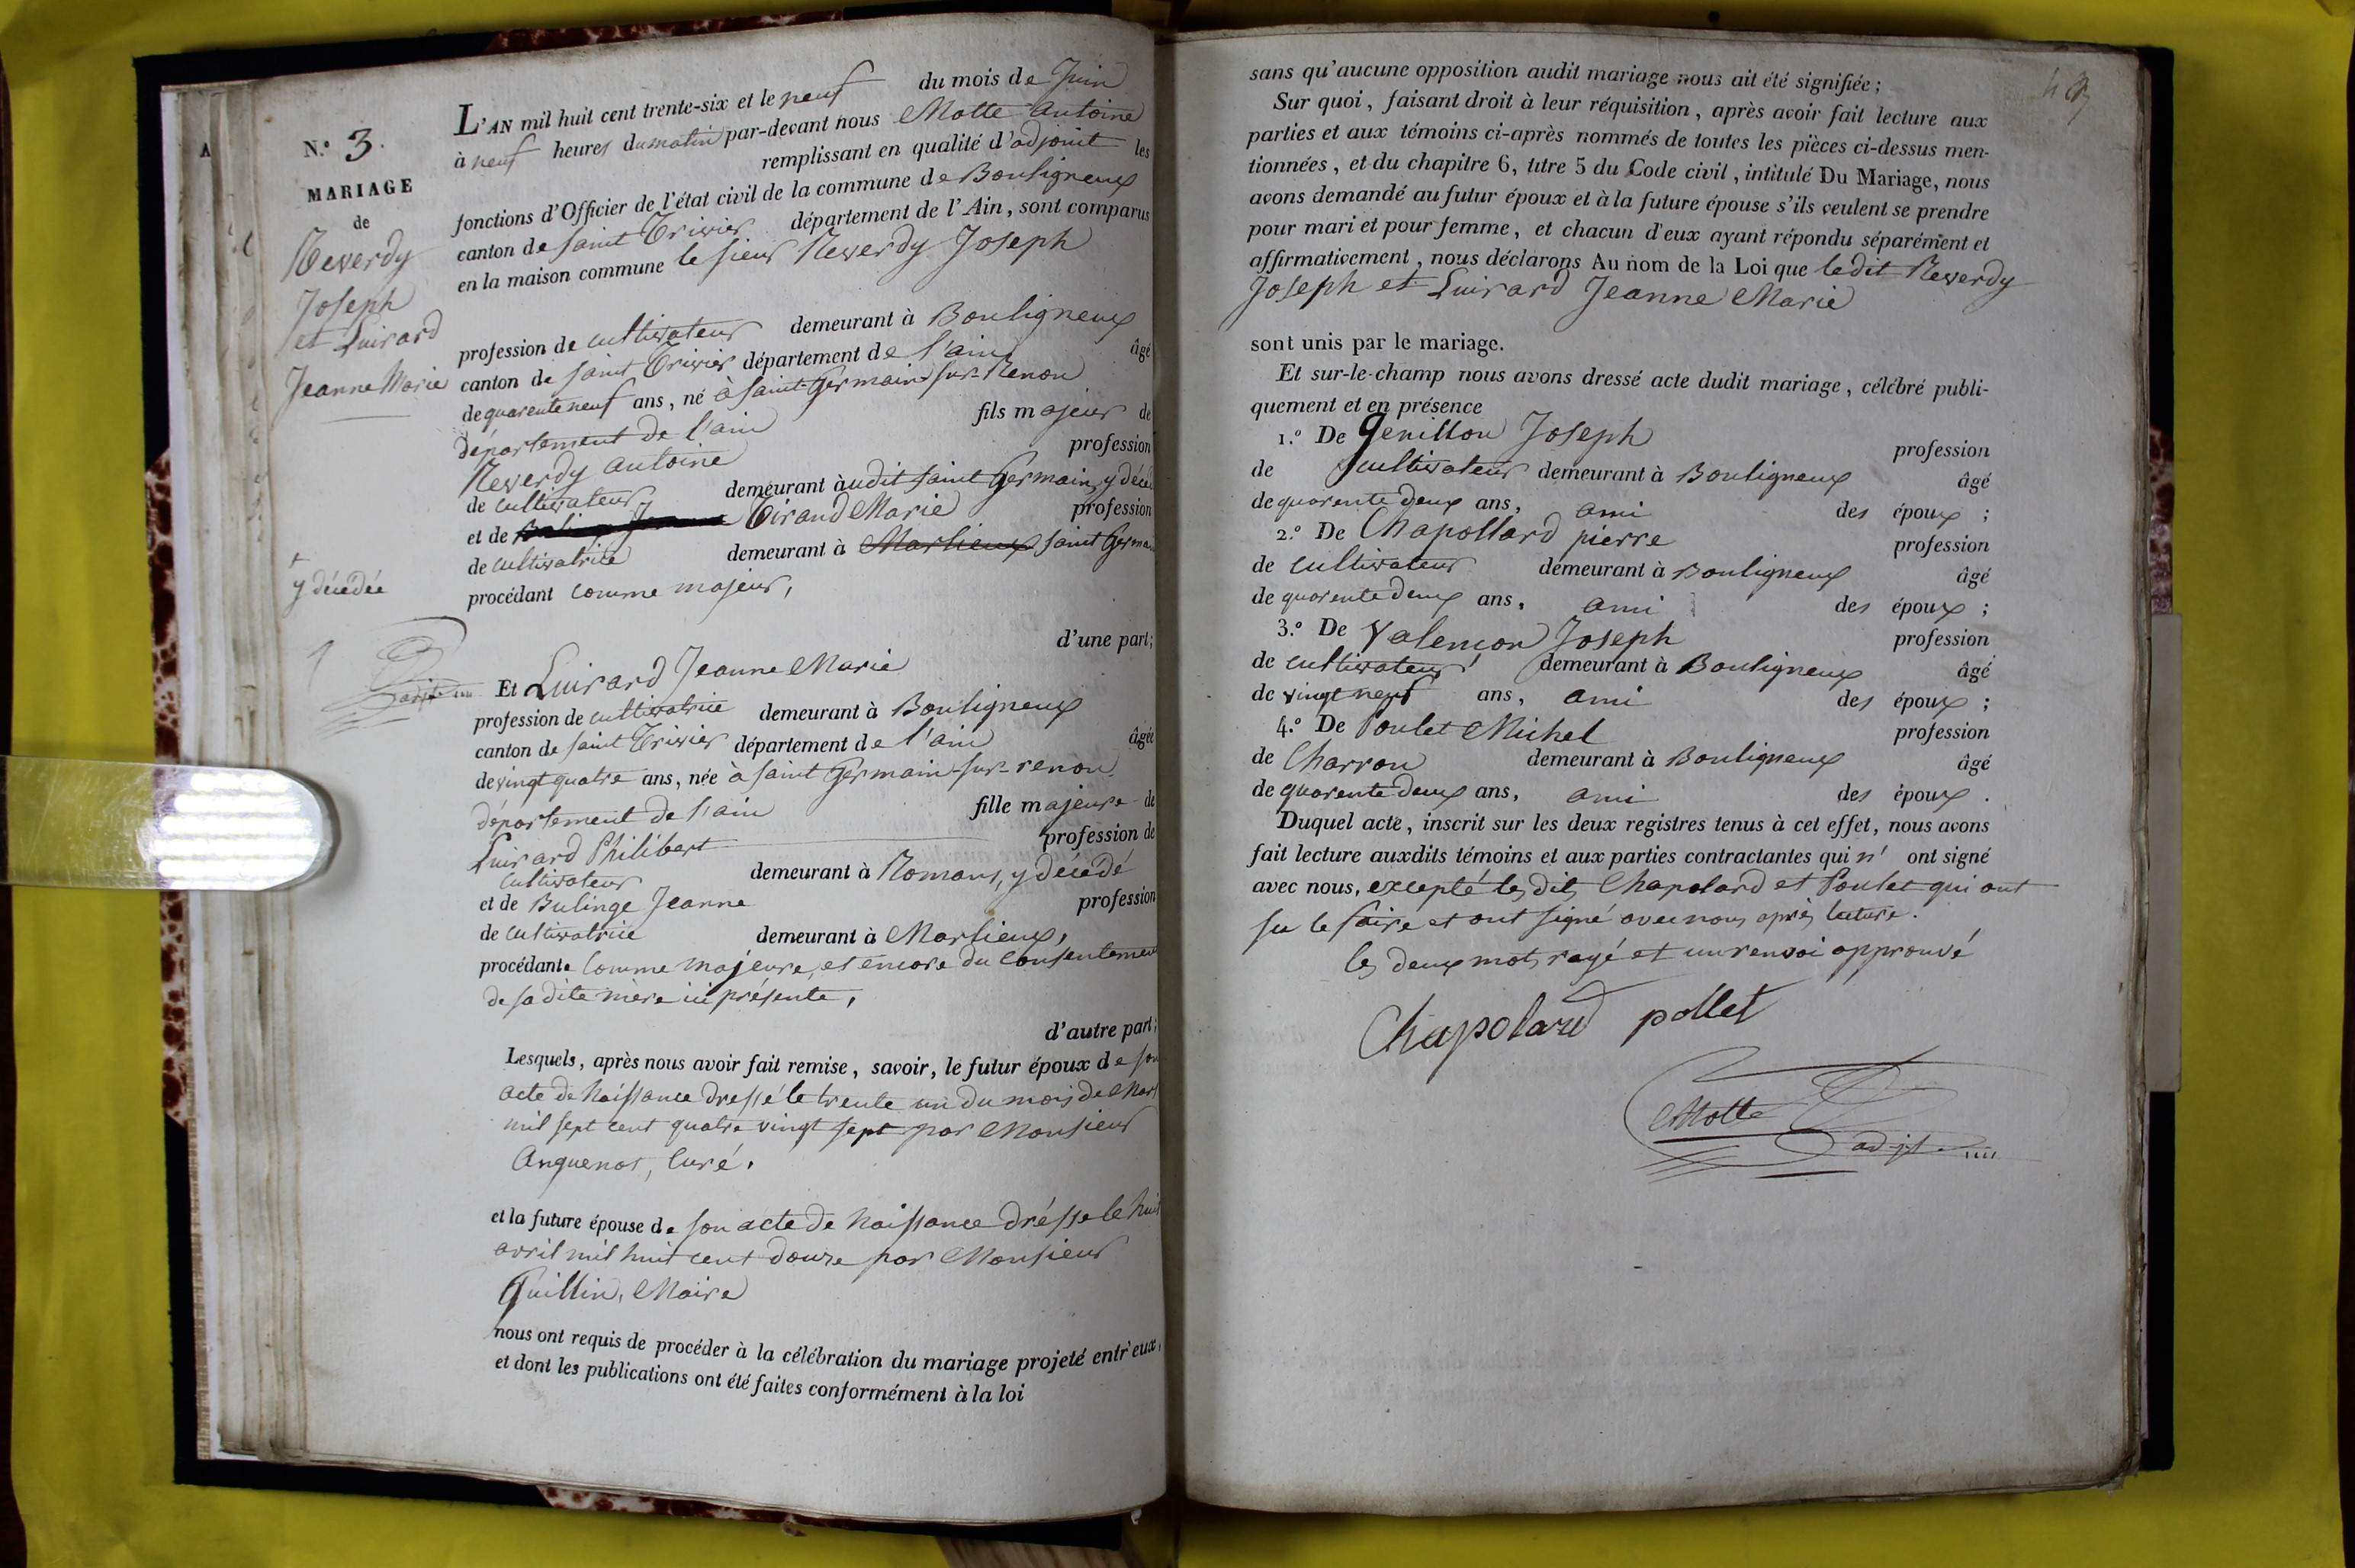 N.º 3.
MARIAGE
de
Reverdy
Joseph
et Luirard
Jeanne Marie
L'AN mil huit cent trente-six et le neuf du mois de Juin
à neuf heures du matin par-devant nous Motte Antoine
remplissant en qualité d'adjoint les
fonctions d'Officier de l'état civil de la commune de Bouligneux
canton de saint Trivier département de l'Ain, sont comparus
en la maison commune le sieur Reverdy Joseph
profession de cultivateur demeurant à Bouligneux
canton de saint Trivier département de l'ain âgé
de quarente neuf ans, né à saint Germain sur Renon
département de l'ain fils majeur de
Reverdy antoine profession
de cultivateur demeurant audit saint Germain, y décédé
et de Tirand Marie profession
de cultivatrice demeurant à Marlieux saint Germain
y décédée
procédant comme majeur,
d'une part;
adjt
Et Luirard Jeanne Marie
profession de cultivatrice demeurant à Bouligneux
canton de saint Trivier département de l'ain âgée
de vingt quatre ans, née à saint Germain-sur-renon
département de l'ain fille majeure de
Luirard Philibert profession de
cultivateur demeurant à Romans, y décédé
et de Bulinge Jeanne profession
de cultivatrice demeurant à Marlieux,
procédante comme majeure, et encore du consentement
de sa dite mère ici présente,
d'autre part;
Lesquels, après nous avoir fait remise, savoir, le futur époux de son
acte de naissance dressé le trente un du mois de Mars
mil sept cent quatre vingt sept par Monsieur
Anquenot, curé.
et la future épouse de son acte de naissance dréssé le huit
avril mil huit cent douze par Monsieur
Guillin, Maire
nous ont requis de procéder à la célébration du mariage projeté entr'eux,
et dont les publications ont été faites conformément à la loi
sans qu'aucune opposition audit mariage nous ait été signifiée;
Sur quoi, faisant droit à leur réquisition, après avoir fait lecture aux
parties et aux témoins ci-après nommés de toutes les pièces ci-dessus men-
tionnées, et du chapitre 6, titre 5 du Code civil, intitulé Du Mariage, nous
avons demandé au futur époux et à la future épouse s'ils veulent se prendre
pour mari et pour femme, et chacun d'eux ayant répondu séparément et
affirmativement, nous déclarons Au nom de la Loi que ledit Reverdy
Joseph et Luirard Jeanne Marie
sont unis par le mariage.
Et sur-le-champ nous avons dressé acte dudit mariage, célébré publi-
quement et en présence
1.º De Genillon Joseph profession
de cultivateur demeurant à Bouligneux âgé
de quarente deux ans, ami des époux;
2.º De Chapollard pierre profession
de cultivateur demeurant à Bouligneux âgé
de quarente deux ans, ami des époux;
3.º De Valençon Joseph profession
de cultivateur demeurant à Bouligneux âgé
de vingt neuf ans, ami des époux;
4.º De Poulet Michel profession
de Charron demeurant à Bouligneux âgé
de quarente deux ans, ami des époux.
Duquel acte, inscrit sur les deux registres tenus à cet effet, nous avons
fait lecture auxdits témoins et aux parties contractantes qui n' ont signé
avec nous, excepté les dits Chapolard et Poulet qui ont
su le faire et ont signé avec nous après lecture.
les deux mots rayé et un renvoi approuvé
Chapolard pollet
Motte
adjt